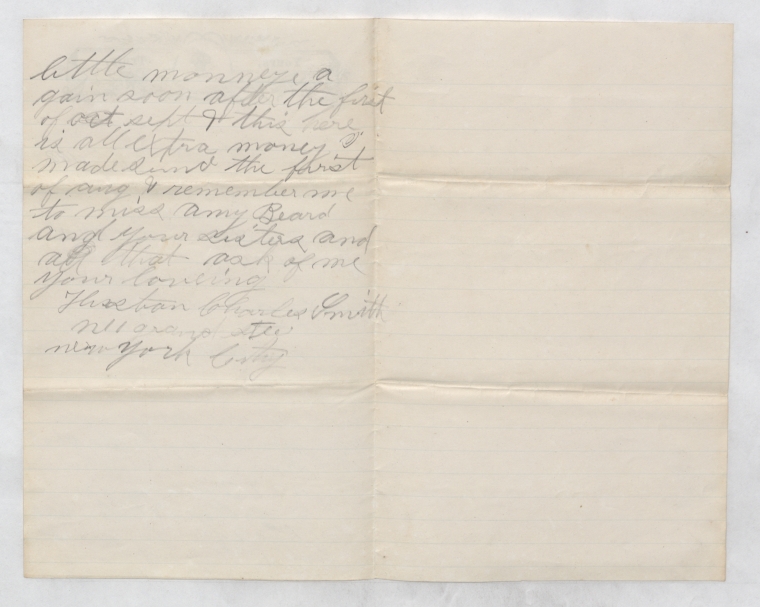 little monneye a
gain soon after the first
of oct sept & this here
is all extra money I
made sind the farst
of aug & remember me
to miss amy Beard
and your sisters and
all that ask of me
your loveing
Husban Charles Smith
grand stee
new York City